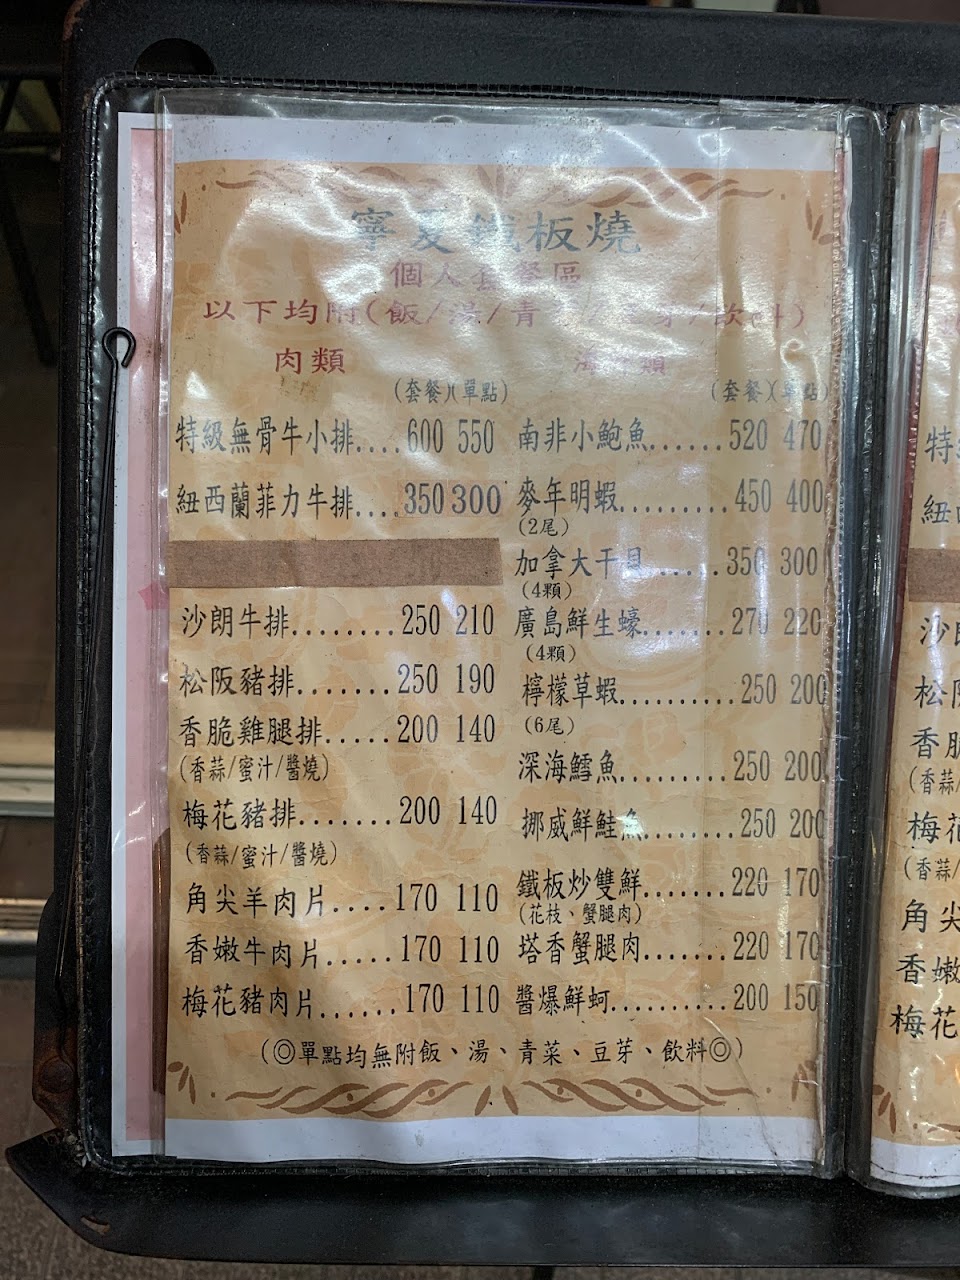 寧夏鐵板燒
個人套餐區
以下均附(飯/湯/青 / 芽/飲料)
肉類
(套餐)(單點)
特級無骨牛小排....600 550
紐西蘭菲力牛排....350 300
沙朗牛排........250 210
松阪豬排.......250 190
香脆雞腿排.....200 140
(香蒜/蜜汁/醬燒)
梅花豬排.......200 140
(香蒜/蜜汁/醬燒)
角尖羊肉片....170 110
香嫩牛肉片.....170 110
梅花豬肉片......170 110
海 類
(套餐)(單點)
南非小鮑魚......520 470
麥年明蝦.........450 400
(2尾)
加拿大干貝......350 300
(4顆)
廣島鮮生蠔.......270 220
(4顆)
檸檬草蝦..........250 200
(6尾)
深海鱈魚.........250 200
挪威鮮鮭魚.......250 200
鐵板炒雙鮮.......220 170
(花枝、蟹腿肉)
塔香蟹腿肉.......220 170
醬爆鮮蚵..........200 150
(◎單點均無附飯、湯、青菜、豆芽、飲料◎)
特
紐
沙
松
香
(香蒜
梅花
(香蒜/
角尖
香嫩
梅花